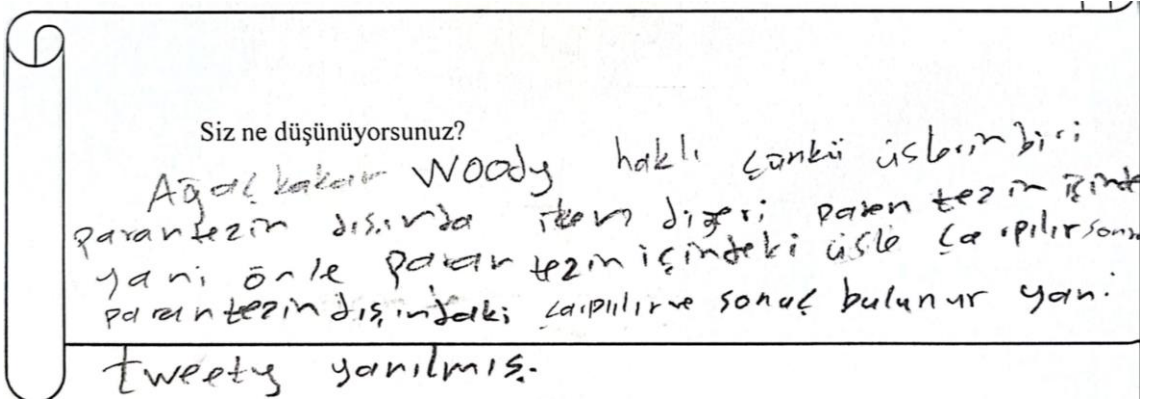 Siz ne düşünüyorsunuz?
Ağaç kakan Woody haklı çünkü üslerin biri
parantezin dışında iken diğeri parentezin içinde
yani önle parantezin içindeki üsle çarpılır sonra
parantezin dışındaki çarpılır ve sonuç bulunur yani
tweety yanılmış.